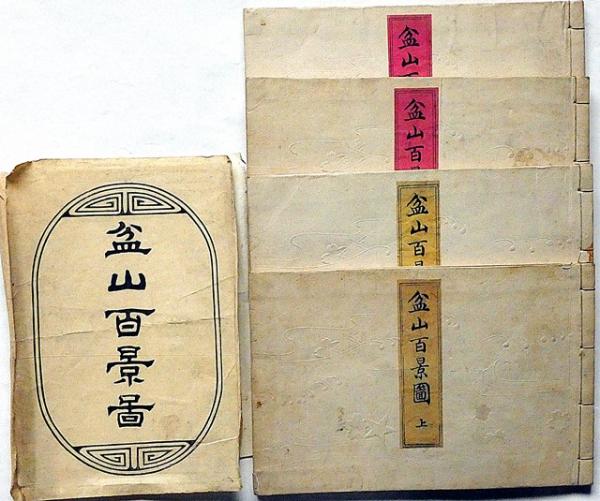 盆山百景啚
盆山百
盆山百景
盆山百景
盆山百景圖
上